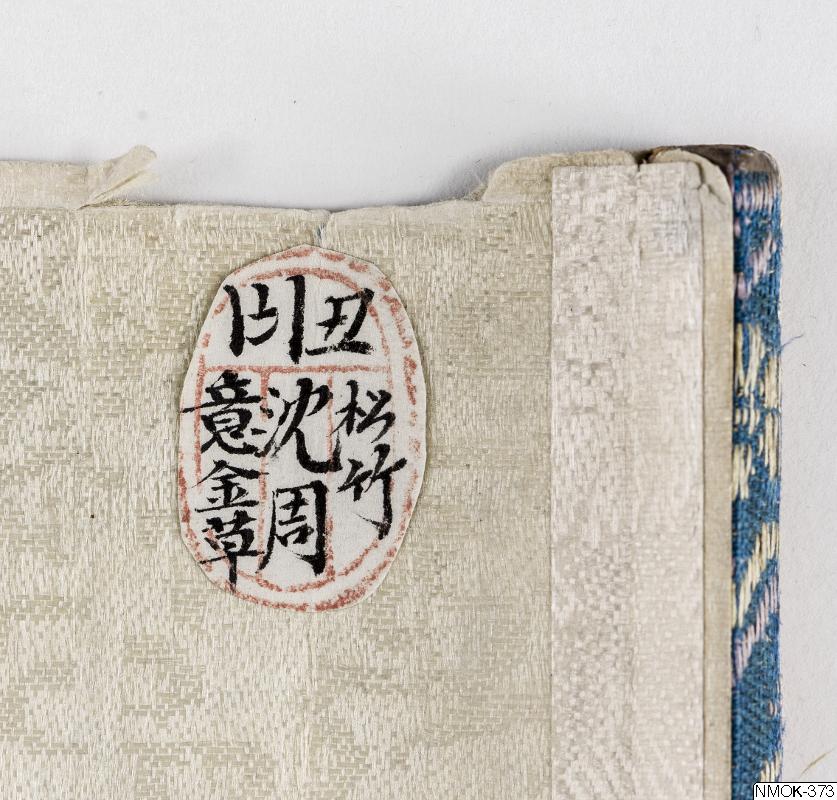 丑
松竹
沈周
意金草
NMOK-373